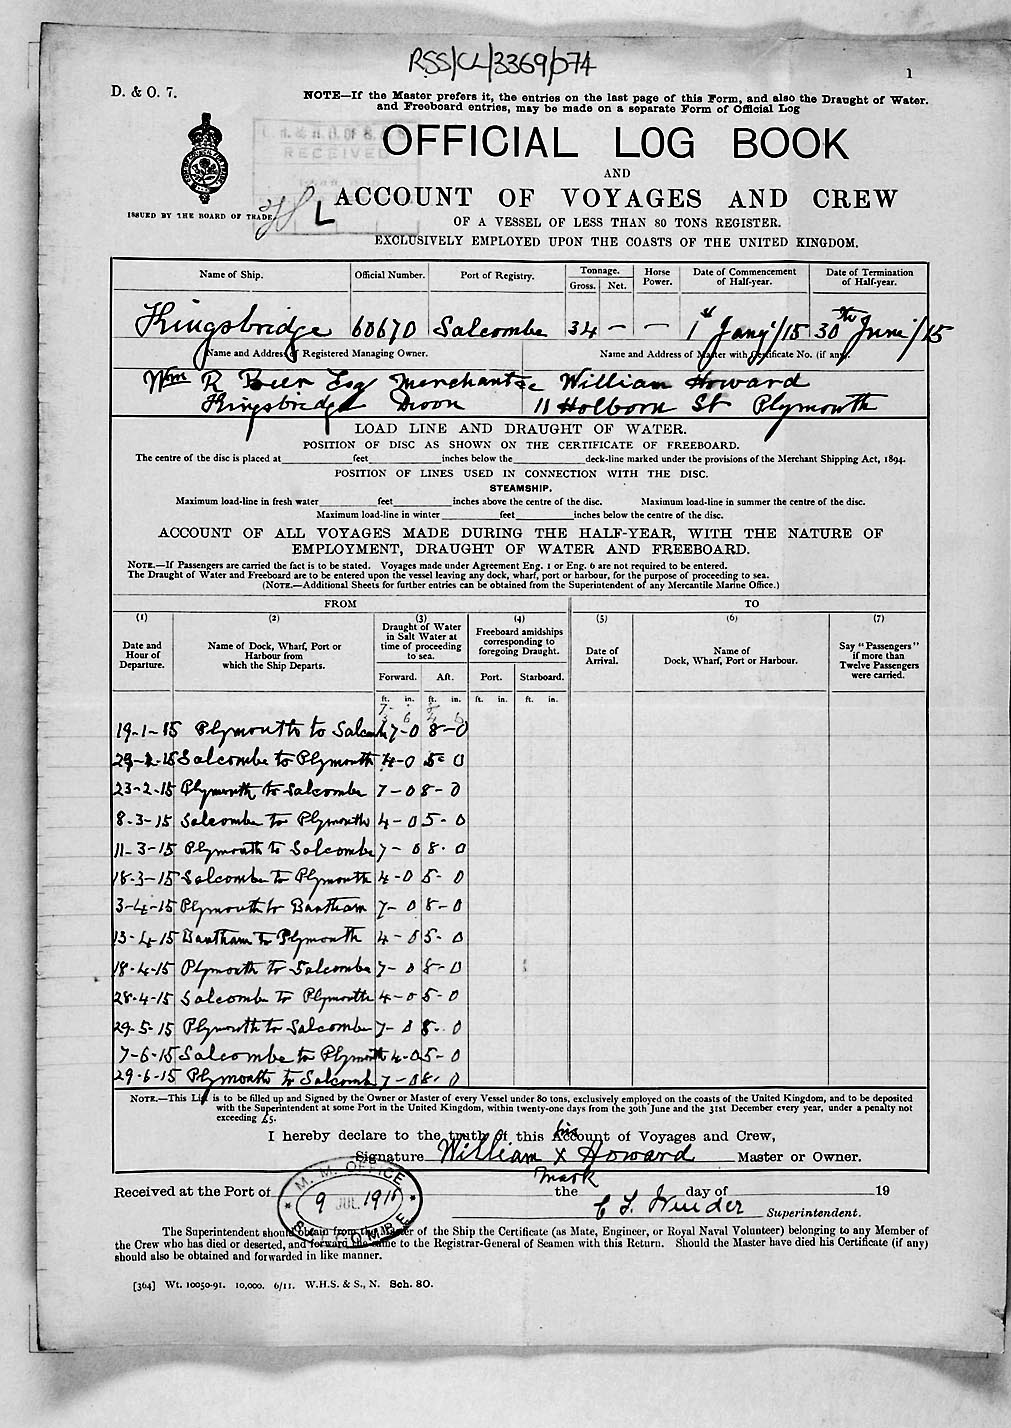 RSS/CL/3369/074
1
D. & O. 7.
NOTE—If the Master prefers it, the entries on the last page of this Form, and also the Draught of Water.
and Freeboard entries, may be made on a separate Form of Official Log
RECEIVED
OFFICIAL LOG BOOK
AND
ACCOUNT OF VOYAGES AND CREW
L
ISSUED BY THE BOARD OF TRADE.
OF A VESSEL OF LESS THAN 80 TONS REGISTER.
EXCLUSIVELY EMPLOYED UPON THE COASTS OF THE UNITED KINGDOM.
Name of Ship. Official Number. Port of Registry. Tonnage. Gross. Net. Horse Power. Date of Commencement of Half-year. Date of Termination of Half-year.
Kingsbridge 60670 Salcombe 34 — — 1st Jany/15 30th June/15
Name and Address of Registered Managing Owner. Name and Address of Master with Certificate No. (if any).
Wm R Beer Esq Merchant &c William Howard
Kingsbridge Devon 11 Holborn St Plymouth
LOAD LINE AND DRAUGHT OF WATER.
POSITION OF DISC AS SHOWN ON THE CERTIFICATE OF FREEBOARD.
The centre of the disc is placed at feet inches below the deck-line marked under the provisions of the Merchant Shipping Act, 1894.
POSITION OF LINES USED IN CONNECTION WITH THE DISC.
STEAMSHIP.
Maximum load-line in fresh water feet inches above the centre of the disc. Maximum load-line in summer the centre of the disc.
Maximum load-line in winter feet inches below the centre of the disc.
ACCOUNT OF ALL VOYAGES MADE DURING THE HALF-YEAR, WITH THE NATURE OF
EMPLOYMENT, DRAUGHT OF WATER AND FREEBOARD.
NOTE.—If Passengers are carried the fact is to be stated. Voyages made under Agreement Eng. 1 or Eng. 6 are not required to be entered.
The Draught of Water and Freeboard are to be entered upon the vessel leaving any dock, wharf, port or harbour, for the purpose of proceeding to sea.
(NOTE.—Additional Sheets for further entries can be obtained from the Superintendent of any Mercantile Marine Office.)
FROM TO
(1) (2) (3) (4) (5) (6) (7)
Date and Hour of Departure. Name of Dock, Wharf, Port or Harbour from which the Ship Departs. Draught of Water in Salt Water at time of proceeding to sea. Freeboard amidships corresponding to foregoing Draught. Date of Arrival. Name of Dock, Wharf, Port or Harbour. Say "Passengers" if more than Twelve Passengers were carried.
Forward. Aft. Port. Starboard.
ft. in. ft. in. ft. in. ft. in.
19-1-15 Plymouth to Salcombe 7-0 8-0
Salcombe to Plymouth 4-0 5-0
23-2-15 Plymouth to Salcombe 7-0 8-0
8-3-15 Salcombe to Plymouth 4-0 5-0
11-3-15 Plymouth to Salcombe 7-0 8-0
18-3-15 Salcombe to Plymouth 4-0 5-0
3-4-15 Plymouth to Bantham 7-0 8-0
13-4-15 Bantham to Plymouth 4-0 5-0
18-4-15 Plymouth to Salcombe 7-0 8-0
28-4-15 Salcombe to Plymouth 4-0 5-0
29-5-15 Plymouth to Salcombe 7-0 8-0
7-6-15 Salcombe to Plymouth 4-0 5-0
29-6-15 Plymouth to Salcomb 7-0 8-0
NOTE.—This List is to be filled up and Signed by the Owner or Master of every Vessel under 80 tons, exclusively employed on the coasts of the United Kingdom, and to be deposited
with the Superintendent at some Port in the United Kingdom, within twenty-one days from the 30th June and the 31st December every year, under a penalty not
exceeding £5.
I hereby declare to the truth of this Account of Voyages and Crew,
his
Signature William X Howard Master or Owner.
mark
M. M. OFFICE
9 JUL 1915
SALCOMBE
Received at the Port of the day of 19
C F. Winder Superintendent.
The Superintendent should obtain from the Master of the Ship the Certificate (as Mate, Engineer, or Royal Naval Volunteer) belonging to any Member of
the Crew who has died or deserted, and forward the same to the Registrar-General of Seamen with this Return. Should the Master have died his Certificate (if any)
should also be obtained and forwarded in like manner.
[364] Wt. 10050-91. 10,000. 6/11. W.H.S. & S., N. Sch. 80.